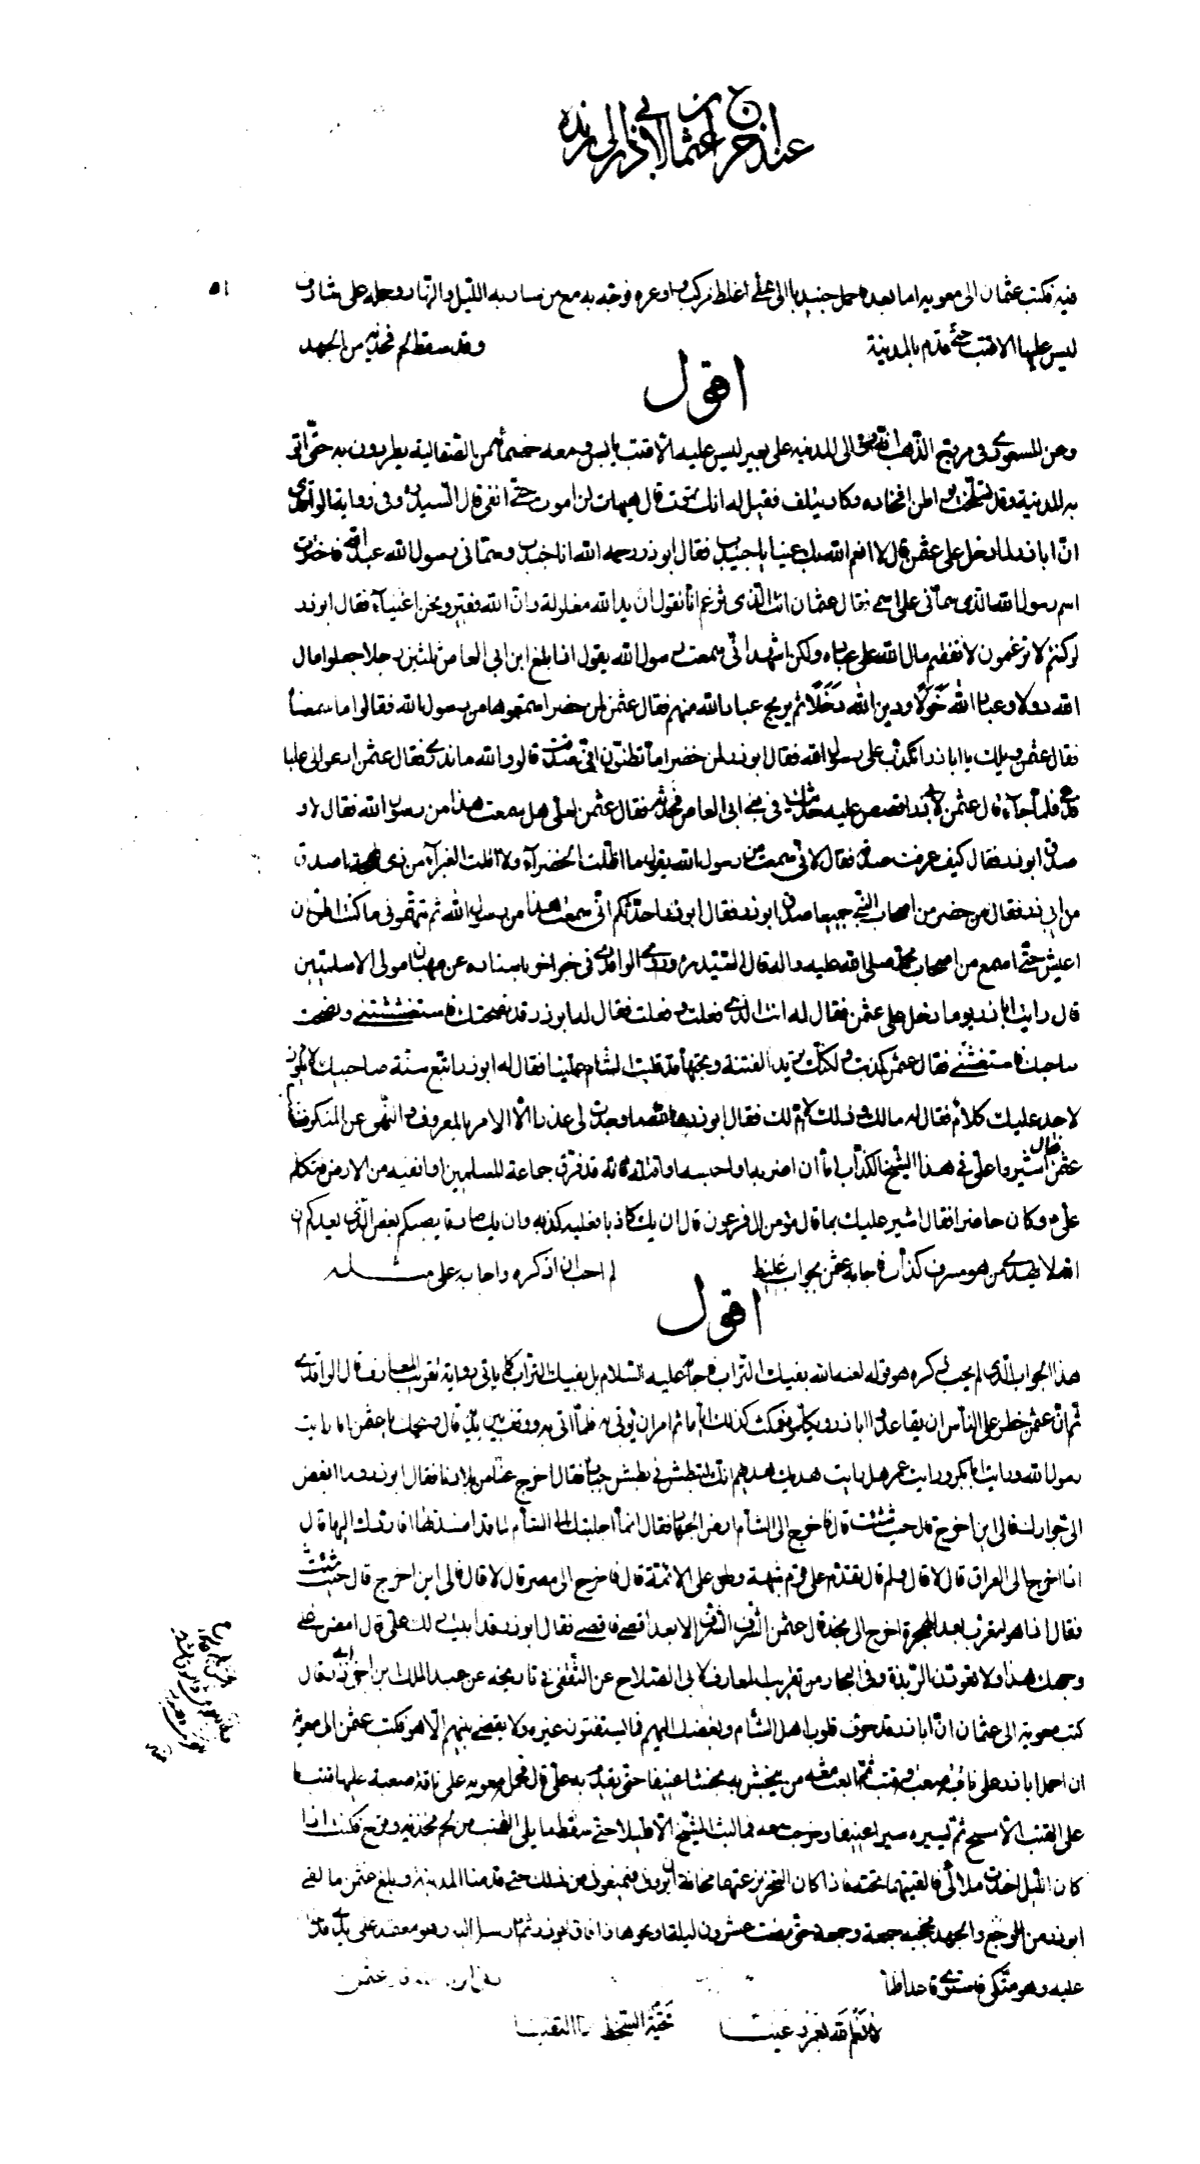 عند اخراج عثمان لابي ذر الى ربذه
٥١
فيه فكتب عثمان الى معويه اما بعد فاحمل جنيدبا الى على اغلظ مركب واوعره فوجه به مع من سار به الليل والنهار وحمله على شارف
ليس عليها الا قتب حتى قدم بالمدينة وقد سقط لحم فخذيه من الجهد
اقول
وعن المسعودى فى مروج الذهب انه رده الى المدينه على بعير ليس عليه الا قتب يابس ومعه خمسمائة من الصقالبة يطردون به حتى اتو
به المدينة وقد تسلخت بواطن افخاذه وكاد يتلف فقيل له انك تموت قال هيهات لن اموت حتى انفى قال السيد ره وفى رواية الواقدى
ان اباذر لما دخل على عثمن قال لا انعم الله بك عينا يا جنيدب فقال ابوذر رحمه الله انا جندب وسمانى رسول الله عبد الله فاخترت
اسم رسول الله الذى سمانى على اسمى فقال عثمان انت الذى تزعم انا نقول ان يد الله مغلولة وان الله فقير ونحن اغنياء فقال ابوذر
لو كنتم لا تزعمون لانفقتم مال الله على عباده ولكن اشهد انى سمعت رسول الله يقول اذا بلغ ابن ابى العاص ثلثين رجلا جعلوا مال
الله دولا وعباد الله خولا ودين الله دخلا ثم يريح عباد الله منهم فقال عثمن لمن حضر اسمعتموها من رسول الله فقالوا ما سمعناه
فقال عثمن ويلك يا اباذر اتكذب على رسول الله فقال ابوذر لمن حضر اما تظنون انى صدقت قالوا والله ما ندرى فقال عثمن ادعوا لى عليا
فدعى فلما جاء قال عثمن لابى ذر اقصص عليه حديثك فى بنى ابى العاص فحدثه فقال عثمن لعلى هل سمعت هذا من رسول الله فقال لا و
صدق ابوذر فقال كيف عرفت صدقه فقال لانى سمعت من رسول الله يقول ما اظلت الخضراء ولا اقلت الغبراء من ذى لهجة اصدق
من ابى ذر فقال من حضر من اصحاب النبى جميعا صدق ابوذر فقال ابوذر احدثكم انى سمعت هذا من رسول الله ثم تتهمونى ما كنت اظن ان
اعيش حتى اسمع من اصحاب محمد صلى الله عليه واله قال السيد ره وروى الواقدى فى خبر اخر باسناده عن صهبان مولى الاسلميين
قال رايت اباذر يوما دخل على عثمن فقال له انت الذى فعلت وفعلت فقال له ابوذر قد نصحتك فاستغششتنى ونصحت
صاحبك فاستغشنى فقال عثمن كذبت ولكنك تريد الفتنة وتحبها قد قلبت الشام علينا فقال له ابوذر اتبع سنة صاحبيك لا يكون
لاحد عليك كلام فقال له مالك وذلك لا ام لك فقال ابوذر والله ما وجدت لى عذرا الا الامر بالمعروف والنهى عن المنكر فغضب
عثمن فقال اشيروا على فى هذا الشيخ الكذاب اما ان اضربه او احبسه او اقتله فانه قد فرق جماعة المسلمين او انفيه من الارض فتكلم
على ع وكان حاضرا فقال اشير عليك بما قال مؤمن ال فرعون قال ان يك كاذبا فعليه كذبه وان يك صادقا يصبكم بعض الذى يعدكم ان
الله لا يهدى من هو مسرف كذاب فاجابه عثمن بجواب غليظ لم احب ان اذكره واجابه على ع بمثله
اقول
هذا الجواب الذى لم يحب ذكره هو قوله لعنه الله بفيك التراب فاجابه عليه السلام بل بفيك التراب كما ياتى رواية تقريب المعارف قال الواقدى
ثم ان عثمن حظر على الناس ان يقاعدوا اباذر ويكلموه فمكث كذلك اياما ثم امر ان يؤتى به فلما اتى به ووقف بين يديه قال ويحك يا عثمن اما رايت
رسول الله ورايت ابابكر ورايت عمر هل رايت هديك هديهم انك لتبطش بى بطش جبار فقال اخرج عنا من بلادنا فقال ابوذر وما ابغض
الى جوارك فالى اين اخرج قال حيث شئت قال فاخرج الى الشام ارض الجهاد فقال انما اجلبتك من الشام لما قد افسدتها افاردك اليها قال
اذا اخرج الى العراق قال لا قال ولم قال تقدم على قوم شبهة وطعن على الائمة قال فاخرج الى مصر قال لا قال فالى اين اخرج قال حيث شئت
فقال اذا هو التعرب بعد الهجرة اخرج الى نجد قال عثمن الشرف الشرف الابعد اقصى فاقصى فقال ابوذر قد ابيت ذلك على قال امض على
وجهك هذا ولا تعدون الربذة وفى البحار من تقريب المعارف لابى الصلاح عن الثقفى فى تاريخه عن عبد الملك بن اخى ابى ذر قال
كتب معوية الى عثمان ان اباذر قد حرف قلوب اهل الشام وبغضك اليهم فما يستفتون غيره ولا يقضى بينهم الا هو فكتب عثمن الى معوية
ان احمل اباذر على ناب صعبة وقتب ثم ابعث معه من ينخش به نخشا عنيفا حتى يقدم به على قال فحمله معويه على ناقة صعبة عليها قتب ما
على القتب الا مسح ثم يسيره سيرا عنيفا وخرجت معه فما لبث الشيخ الا قليلا حتى سقط ما يلى القتب من لحم فخذيه وقرح فكنت اذا
كان الليل اخذت ملائى فالقيتهما تحته فاذا كان السحر نزعتها مخافة ان يرونى فيمنعونى من ذلك حتى قدمنا المدينة وبلغ عثمن ما لقى
ابوذر من الوجع والجهد فحجبه جمعة وجمعة حتى مضت عشرون ليلة او نحوها وافاق ابوذر ثم ارسل اليه وهو معتمد على يدى فدخلنا
عليه وهو متكئ فاستوى قاعدا فلما عثمن
لا انعم الله بعمرو عينا تحية السخط اذا التقينا